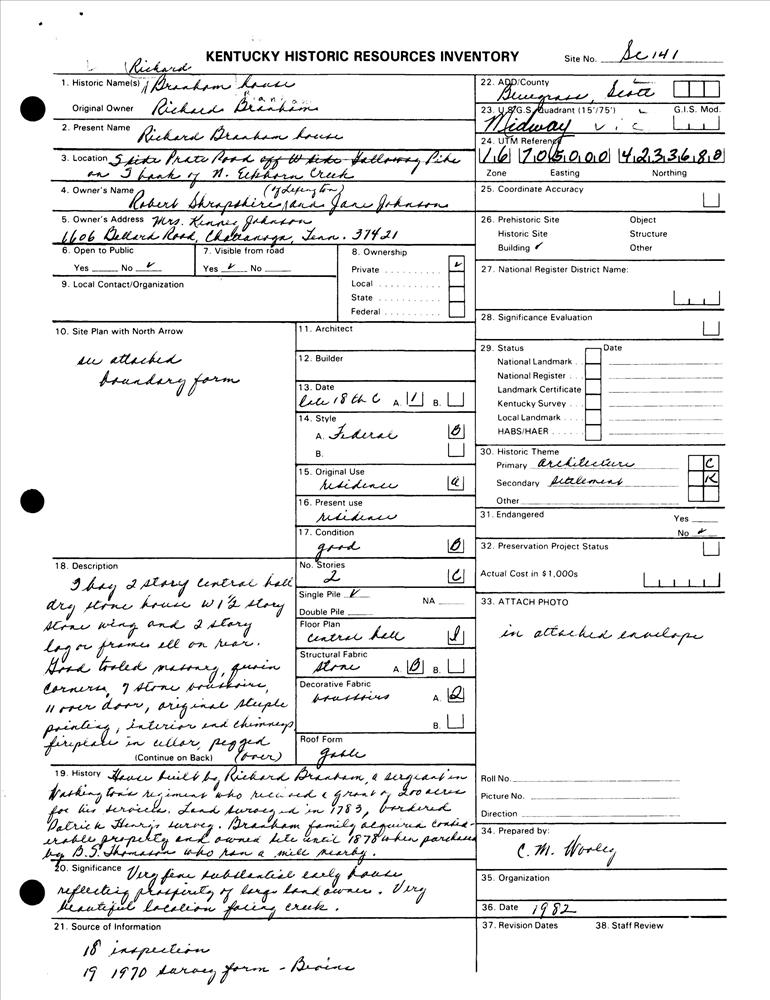 KENTUCKY HISTORIC RESOURCES INVENTORY
Site No. Sc 141
1. Historic Name(s) Richard Branham house
Original Owner Richard Branham
2. Present Name Richard Branham house
3. Location S side Prate Road off W side Galloway Pike
on bank of N. Elkhorn Creek
4. Owner's Name (of Lexington)
Robert Shropshire and Jane Johnson
5. Owner's Address Mrs. Kenney Johnson
6606 Road, Chattanooga, Tenn. 37421
6. Open to Public
Yes ____ No ✓
7. Visible from road
Yes ✓ No ____
8. Ownership
Private .......... ✓
Local ..........
State ..........
Federal ..........
9. Local Contact/Organization
10. Site Plan with North Arrow
see attached
boundary form
11. Architect
12. Builder
13. Date
late 18th C A. 1 B.
14. Style
A. Federal B
B.
15. Original Use
residence a
16. Present use
residence
17. Condition
good B
No. Stories
2 C
Single Pile ✓ NA ____
Double Pile ____
Floor Plan
central hall 1
Structural Fabric
stone A. B B.
Decorative Fabric
voussoirs A. 2
B.
Roof Form
gable
18. Description
bay 2 story central hall
dry stone house w 1½ story
stone wing and 2 story
log or frame ell on rear.
Good tooled masonry, quoin
corners, 7 stone voussoirs,
11 over door, original steeple
pointing, interior end chimneys
fireplace in cellar, pegged
(Continue on Back) (over)
19. History House built by Richard Branham, a sergeant in
Washington's regiment who received a grant of 200 acres
for his services. Land surveyed in 1783, bordered
Patrick Henry's survey. Branham family acquired consid-
erable property and owned site until 1878 when purchased
by B.S. Thomason who ran a mill nearby.
20. Significance Very fine substantial early house
reflecting prosperity of large landowner. Very
beautiful location facing creek.
21. Source of Information
18 inspection
19 1970 survey form - Bevins
22. ADD/County
Bluegrass, Scott
23. U.S.G.S. Quadrant (15'/75') G.I.S. Mod.
Midway
24. UTM Reference
16 705000 4233680
Zone Easting Northing
25. Coordinate Accuracy
26. Prehistoric Site Object
Historic Site Structure
Building ✓ Other
27. National Register District Name:
28. Significance Evaluation
29. Status Date
National Landmark .
National Register . . .
Landmark Certificate
Kentucky Survey . . .
Local Landmark . . . .
HABS/HAER . . . . . .
30. Historic Theme
Primary architecture C
Secondary settlement K
Other
31. Endangered Yes ____
No ✓
32. Preservation Project Status
Actual Cost in $1,000s
33. ATTACH PHOTO
in attached envelope
Roll No.
Picture No.
Direction
34. Prepared by:
C. M. Wooley
35. Organization
36. Date 1982
37. Revision Dates 38. Staff Review